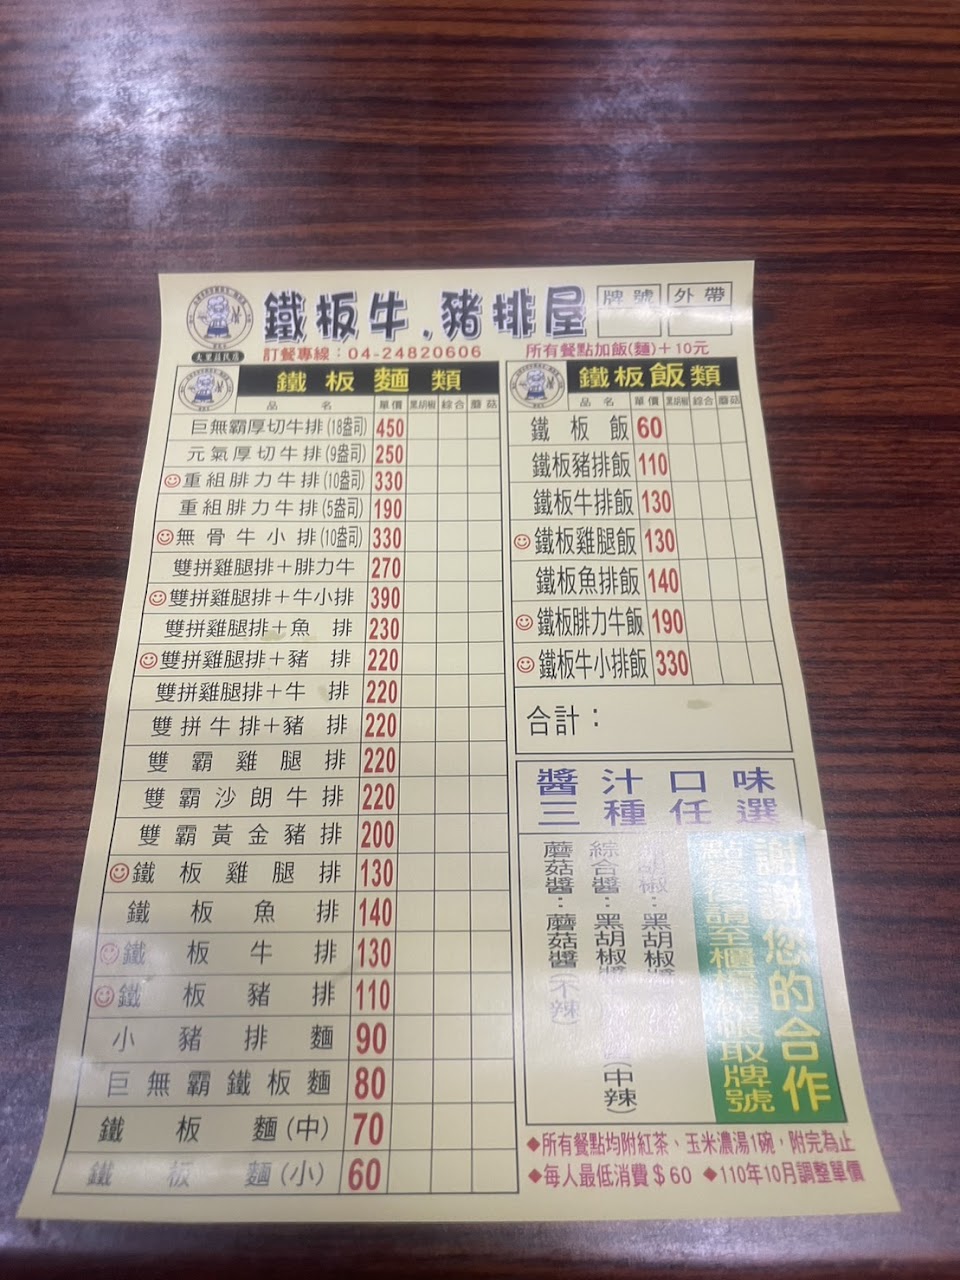 鐵板牛.豬排屋
牌號 外帶
大里益民店
訂餐專線:04-24820606
所有餐點加飯(麵)+10元
鐵板麵類
品名 單價 黑胡椒 綜合 蘑菇
巨無霸厚切牛排(18盎司) 450
元氣厚切牛排(9盎司) 250
重組腓力牛排(10盎司) 330
重組腓力牛排(5盎司) 190
無骨牛小排(10盎司) 330
雙拼雞腿排+腓力牛 270
雙拼雞腿排+牛小排 390
雙拼雞腿排+魚排 230
雙拼雞腿排+豬排 220
雙拼雞腿排+牛排 220
雙拼牛排+豬排 220
雙霸雞腿排 220
雙霸沙朗牛排 220
雙霸黃金豬排 200
鐵板雞腿排 130
鐵板魚排 140
鐵板牛排 130
鐵板豬排 110
小豬排麵 90
巨無霸鐵板麵 80
鐵板麵(中) 70
鐵板麵(小) 60
鐵板飯類
品名 單價 黑胡椒 綜合 蘑菇
鐵板飯 60
鐵板豬排飯 110
鐵板牛排飯 130
鐵板雞腿飯 130
鐵板魚排飯 140
鐵板腓力牛飯 190
鐵板牛小排飯 330
合計:
醬汁口味
三種任選
謝謝您的合作
點餐後請至櫃檯 取牌號
胡椒:黑胡椒醬
綜合醬:黑胡椒醬 (中辣)
蘑菇醬:蘑菇醬(不辣)
◆所有餐點均附紅茶、玉米濃湯1碗,附完為止
◆每人最低消費$60 ◆110年10月調整單價